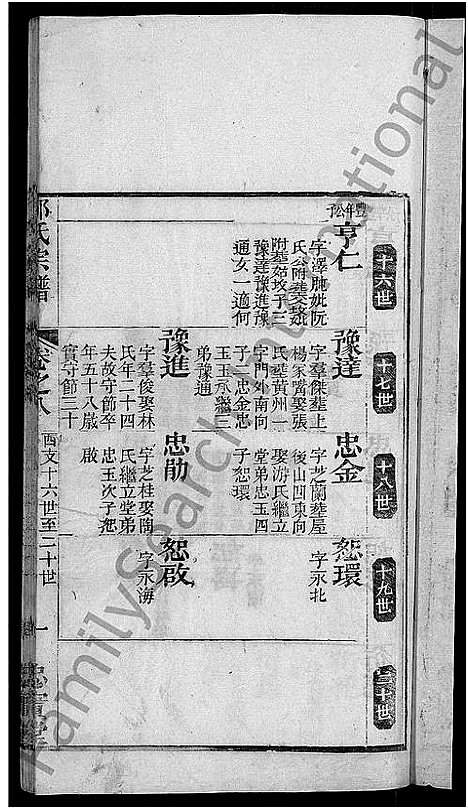 十六世
十七世
十八世
十九世
二十世
豐年公子
亨仁
字澤
氏公附葬
附葬
豫達豫進豫
通女一適何
豫達
字羣傑葬上
楊家嘴娶張
氏葬黃州一
字門外南向
子二忠金忠
玉玉承繼三
弟豫通
忠金
字芝蘭葬屋
後山四東向
娶游氏繼立
堂弟忠玉四
子恕環
恕環
字永北
豫進
字羣俊娶林
氏年二十四
夫故守節卒
年五十八歲
實守節三十
忠勛
字芝桂娶陶
氏繼立堂弟
忠玉次子恕
啟
恕啟
字永海
氏宗譜
卷之八
酉支十六世至二十世
一
FamilySearch International